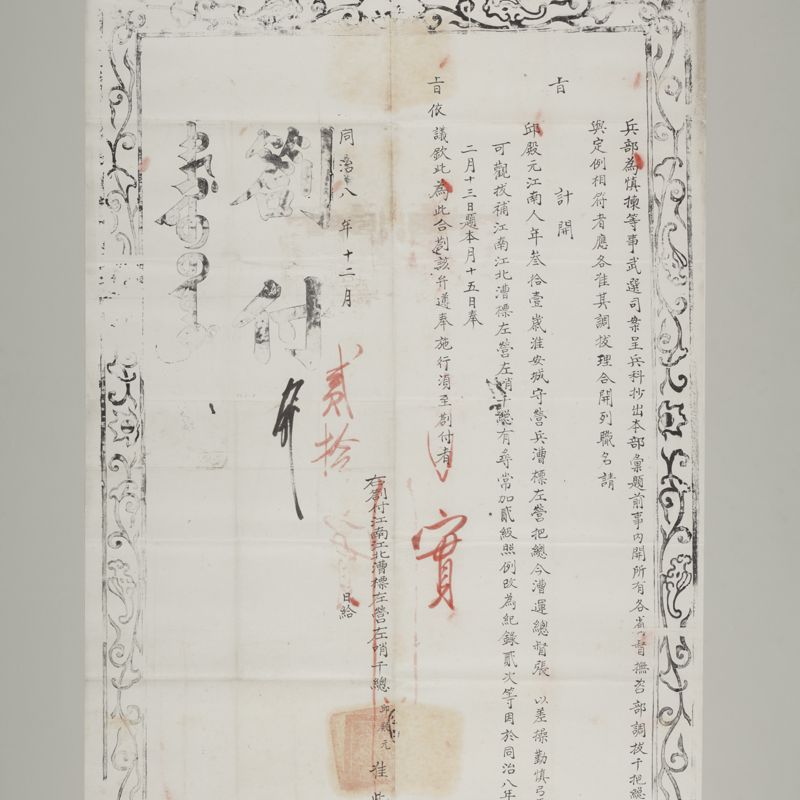 兵部為慎揀等事武選司案呈兵科抄出本部彙題前事內開所有各省督撫咨部調拔千把總
與定例相符者應各准其調拔理合開列職名請
旨
計開
邱殿元江南人年叁拾壹歲淮安城守營兵漕標左營把總今漕運總督張 以差操勤慎弓
可觀拔補江南江北漕標左營左哨千總有尋常加貳級照例改為紀錄貳次等因於同治八年
二月十三日題本月十五日奉
旨依議欽此為此合劄該弁遵奉施行須至劄付者
實
右劄付江南江北漕標左營左哨千總邱殿元 准此
同治八年十二月貳拾 日給
劄付